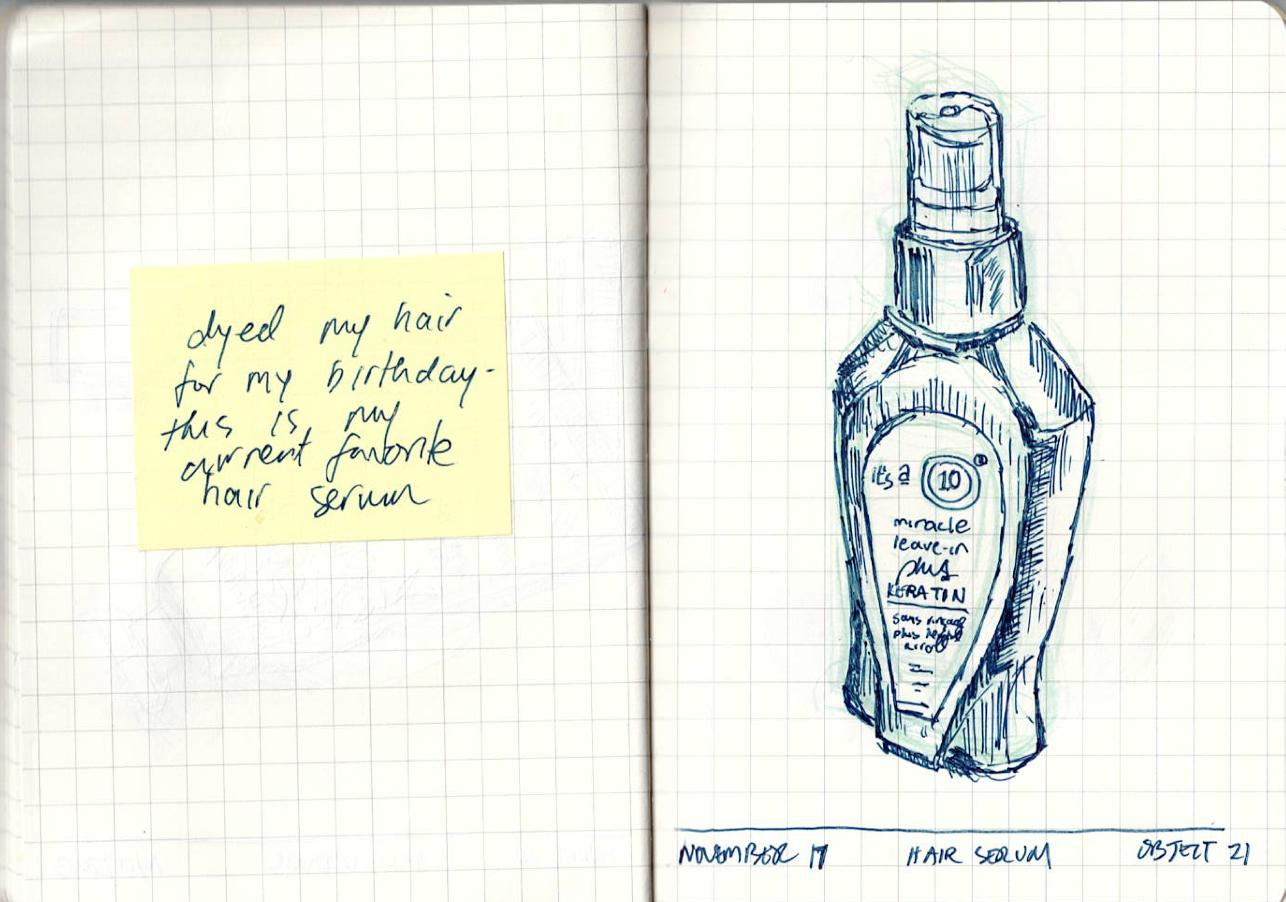 dyed my hair
for my birthday-
this is my
current favorite
hair serum
it's a 10
miracle
leave-in
plus
KERATIN
sans rinçage
plus
miracle
NOVEMBER 17 HAIR SERUM OBJECT 21